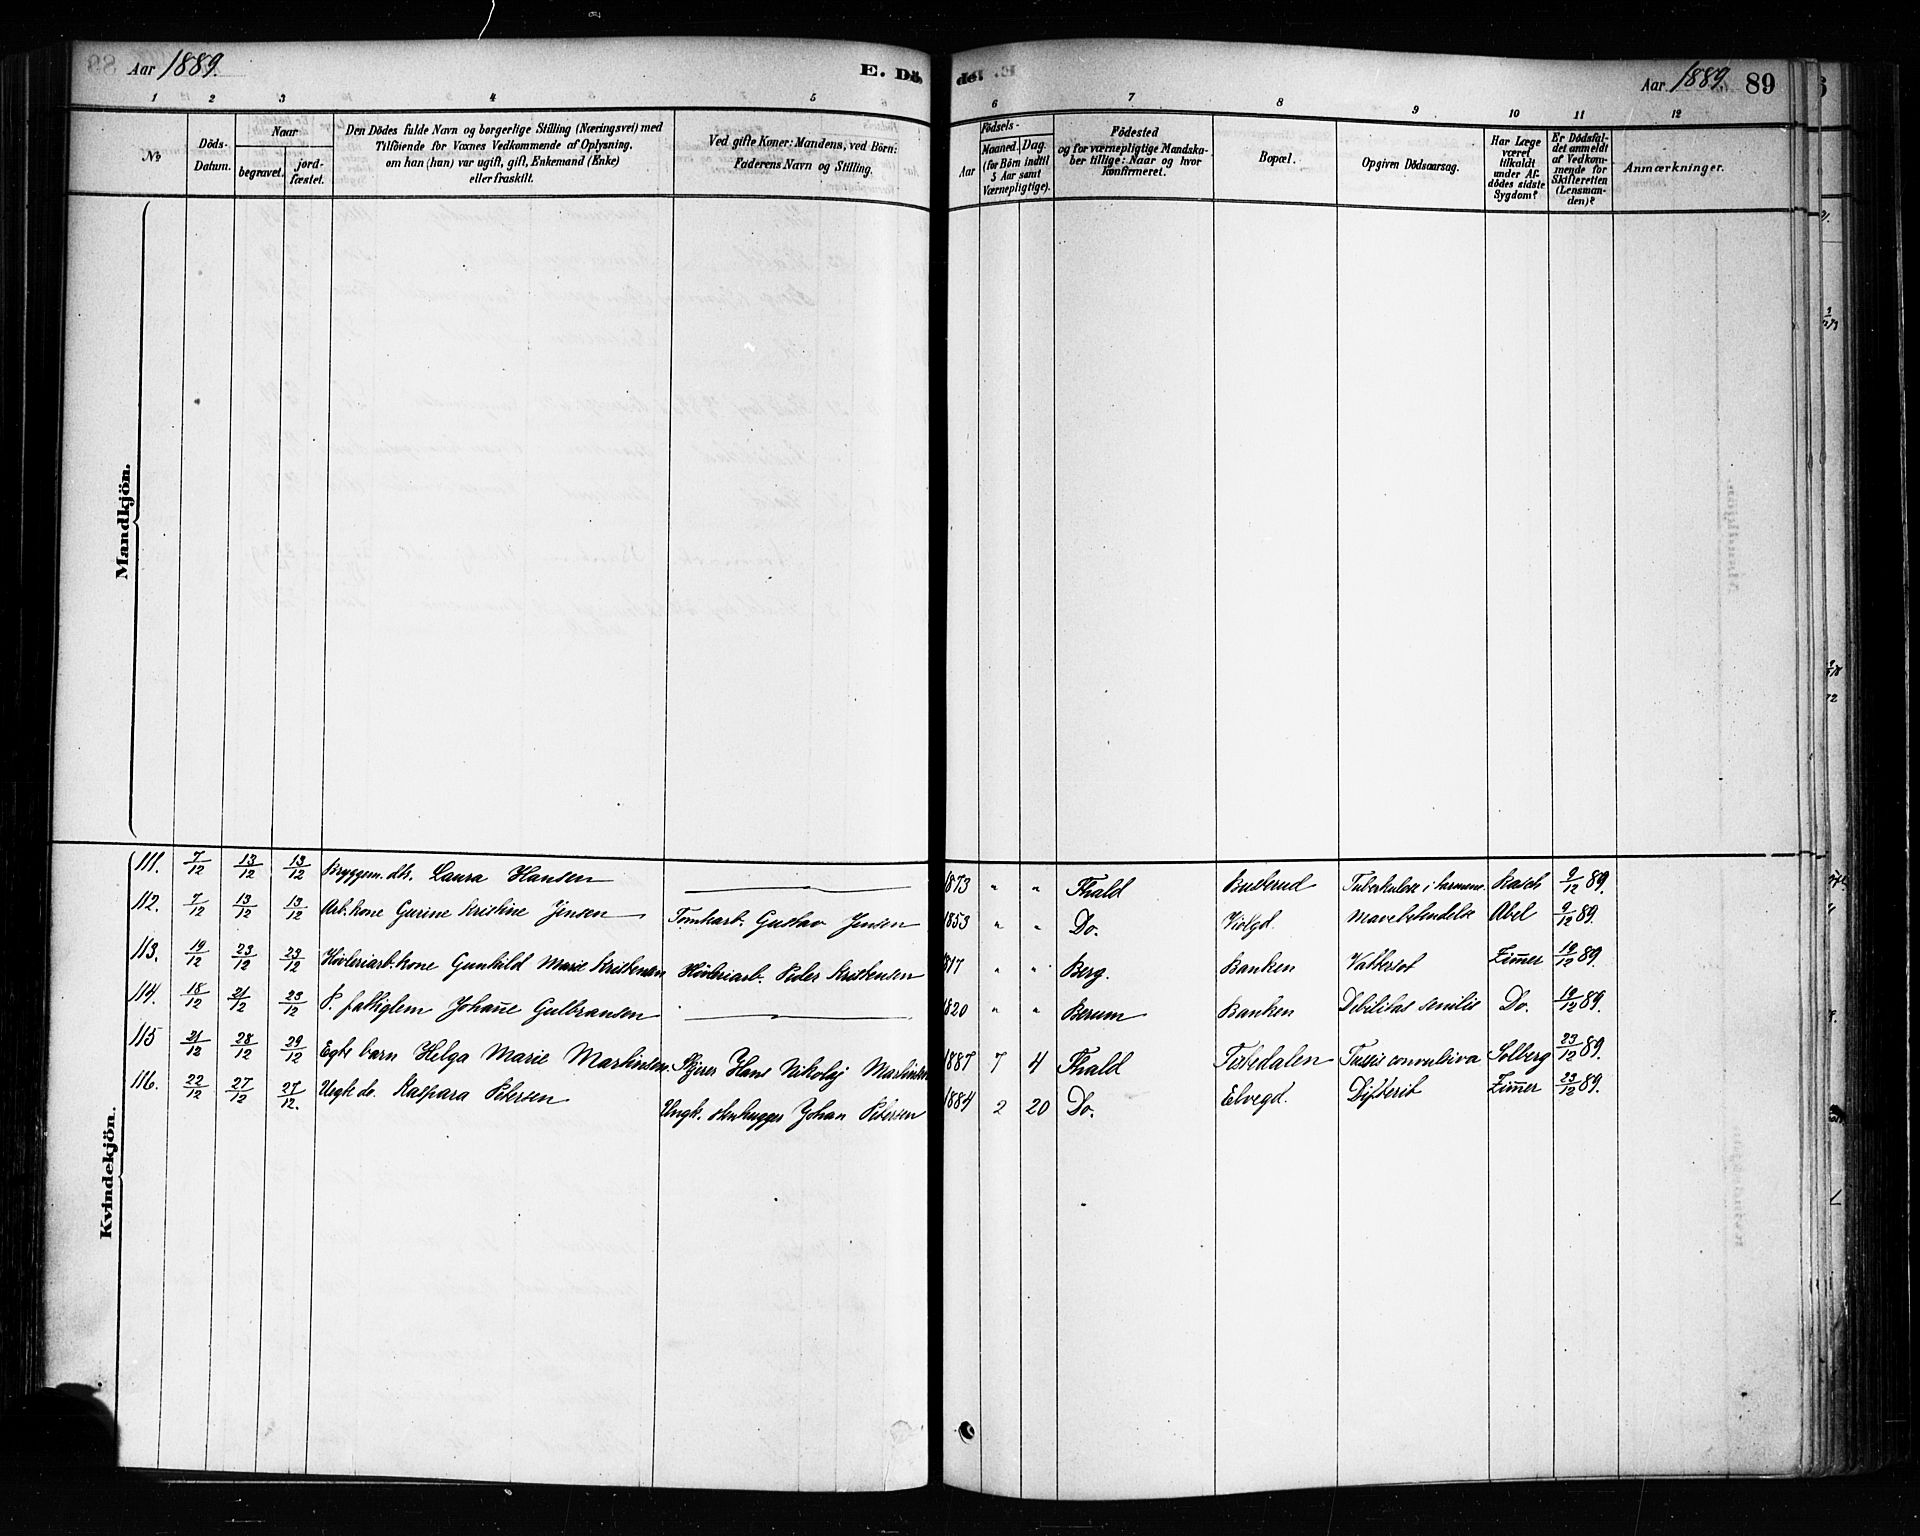 Aar 1889.
E. Dö- de.
Aar 1889. 89
1 2 3 4 5 6 7 8 9 10 11 12
No
Döds-Datum.
Naar
begravet.
jord-fæstet.
Den Dödes fulde Navn og borgerlige Stilling (Næringsvei) med
Tilföiende for Voxnes Vedkommende af Oplysning,
om han (hun) var ugift, gift, Enkemand (Enke)
eller fraskilt.
Ved gifte Koner: Mandens, ved Börn:
Faderens Navn og Stilling.
Födsels-
Aar
Maaned. Dag.
(for Börn indtil
5 Aar samt
Værnepligtige).
Födested
og for værnepligtige Mandska-
ber tillige: Naar og hvor
konfirmeret.
Bopæl.
Opgiven Dödsaarsag.
Har Læge
været
tilkaldt
under Af-
dödes sidste
Sygdom?
Er Dödsfal-
det anmeldt
af Vedkom-
mende for
Skifteretten
(Lensman-
den)?
Anmærkninger.
Mandkjön.
Kvindekjön.
111. 7/12 13/12 13/12 Bryggem. dtr. Laura Hansen 1873 " " Fhald Buterud Tuberkulose i tarmene Rasch 9/12 89.
112. 7/12 13/12 13/12 Arb. kone Gurine Kristine Jensen Tomtarb. Gustav Jensen 1853 " " Do. Violgd. Mavebetendelse Abel 9/12 89.
113. 19/12 23/12 23/12 Høvleriarb. kone Gunhild Marie Kristensen Høvleriarb. Peder Kristensen 1817 " " Berg. Banken Vattersot Zimmer 19/12 89.
114. 18/12 21/12 23/12 F. fattiglem Johanne Gulbransen 1820 " " Berum Banken Debilitas senilis Do. 19/12 89.
115 21/12 28/12 29/12 Egte barn Helga Marie Martinsen Skjærer Hans Nikolaj Martinsen 1887 7 4 Fhald Tistedalen Tussis convulsiva Solberg 23/12 89.
116. 22/12 27/12 27/12. Uegte do. Kaspara Petersen Ungk. stenhugger Johan Petersen 1884 2 20 Do. Elvegd. Difterit Zimmer 23/12 89.